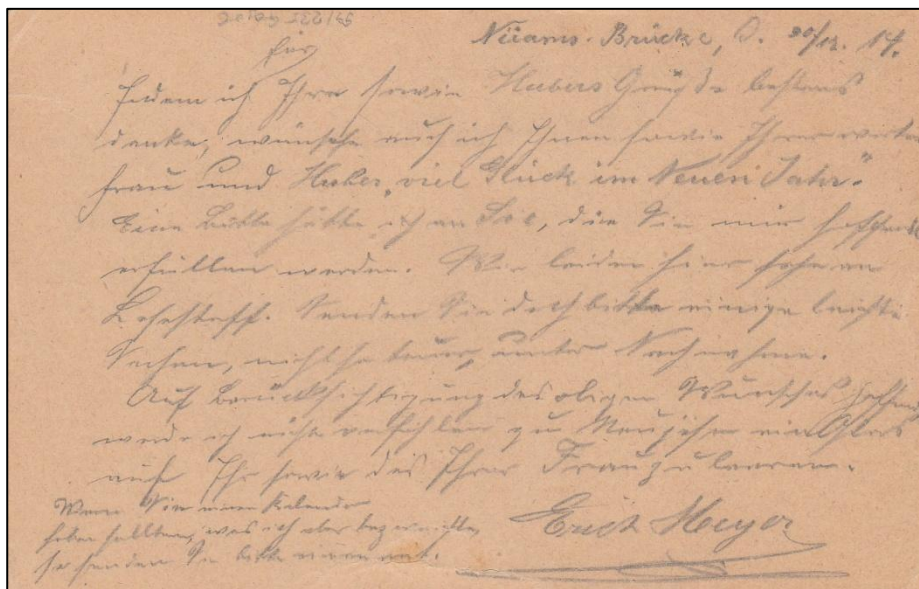 Nüams-Brücke, d. 30/12. 14.
für
Indem ich Ihre sowie Hubers Grüße bestens
danke, wünsche auch ich Ihnen sowie Ihrer werten
Frau und Huber „viel Glück im Neuen Jahr."
Eine Bitte hätte ich an Sie, die Sie mir hoffentl.
erfüllen werden. Wir leiden hier sehr an
Lesestoff. Senden Sie doch bitte einige leichte
Sachen, nicht so teuer, unter Nachnahme.
Auf Berücksichtigung des obigen Wunsches hoffend
werde ich nicht verfehlen zu Neujahr ein Glas
auf Ihr sowie des Ihrer Frau zu leeren.
Wenn Sie einen Kalender
haben sollten, was ich aber bezweifle,
so senden Sie bitte einen mit.
Erich Meyer